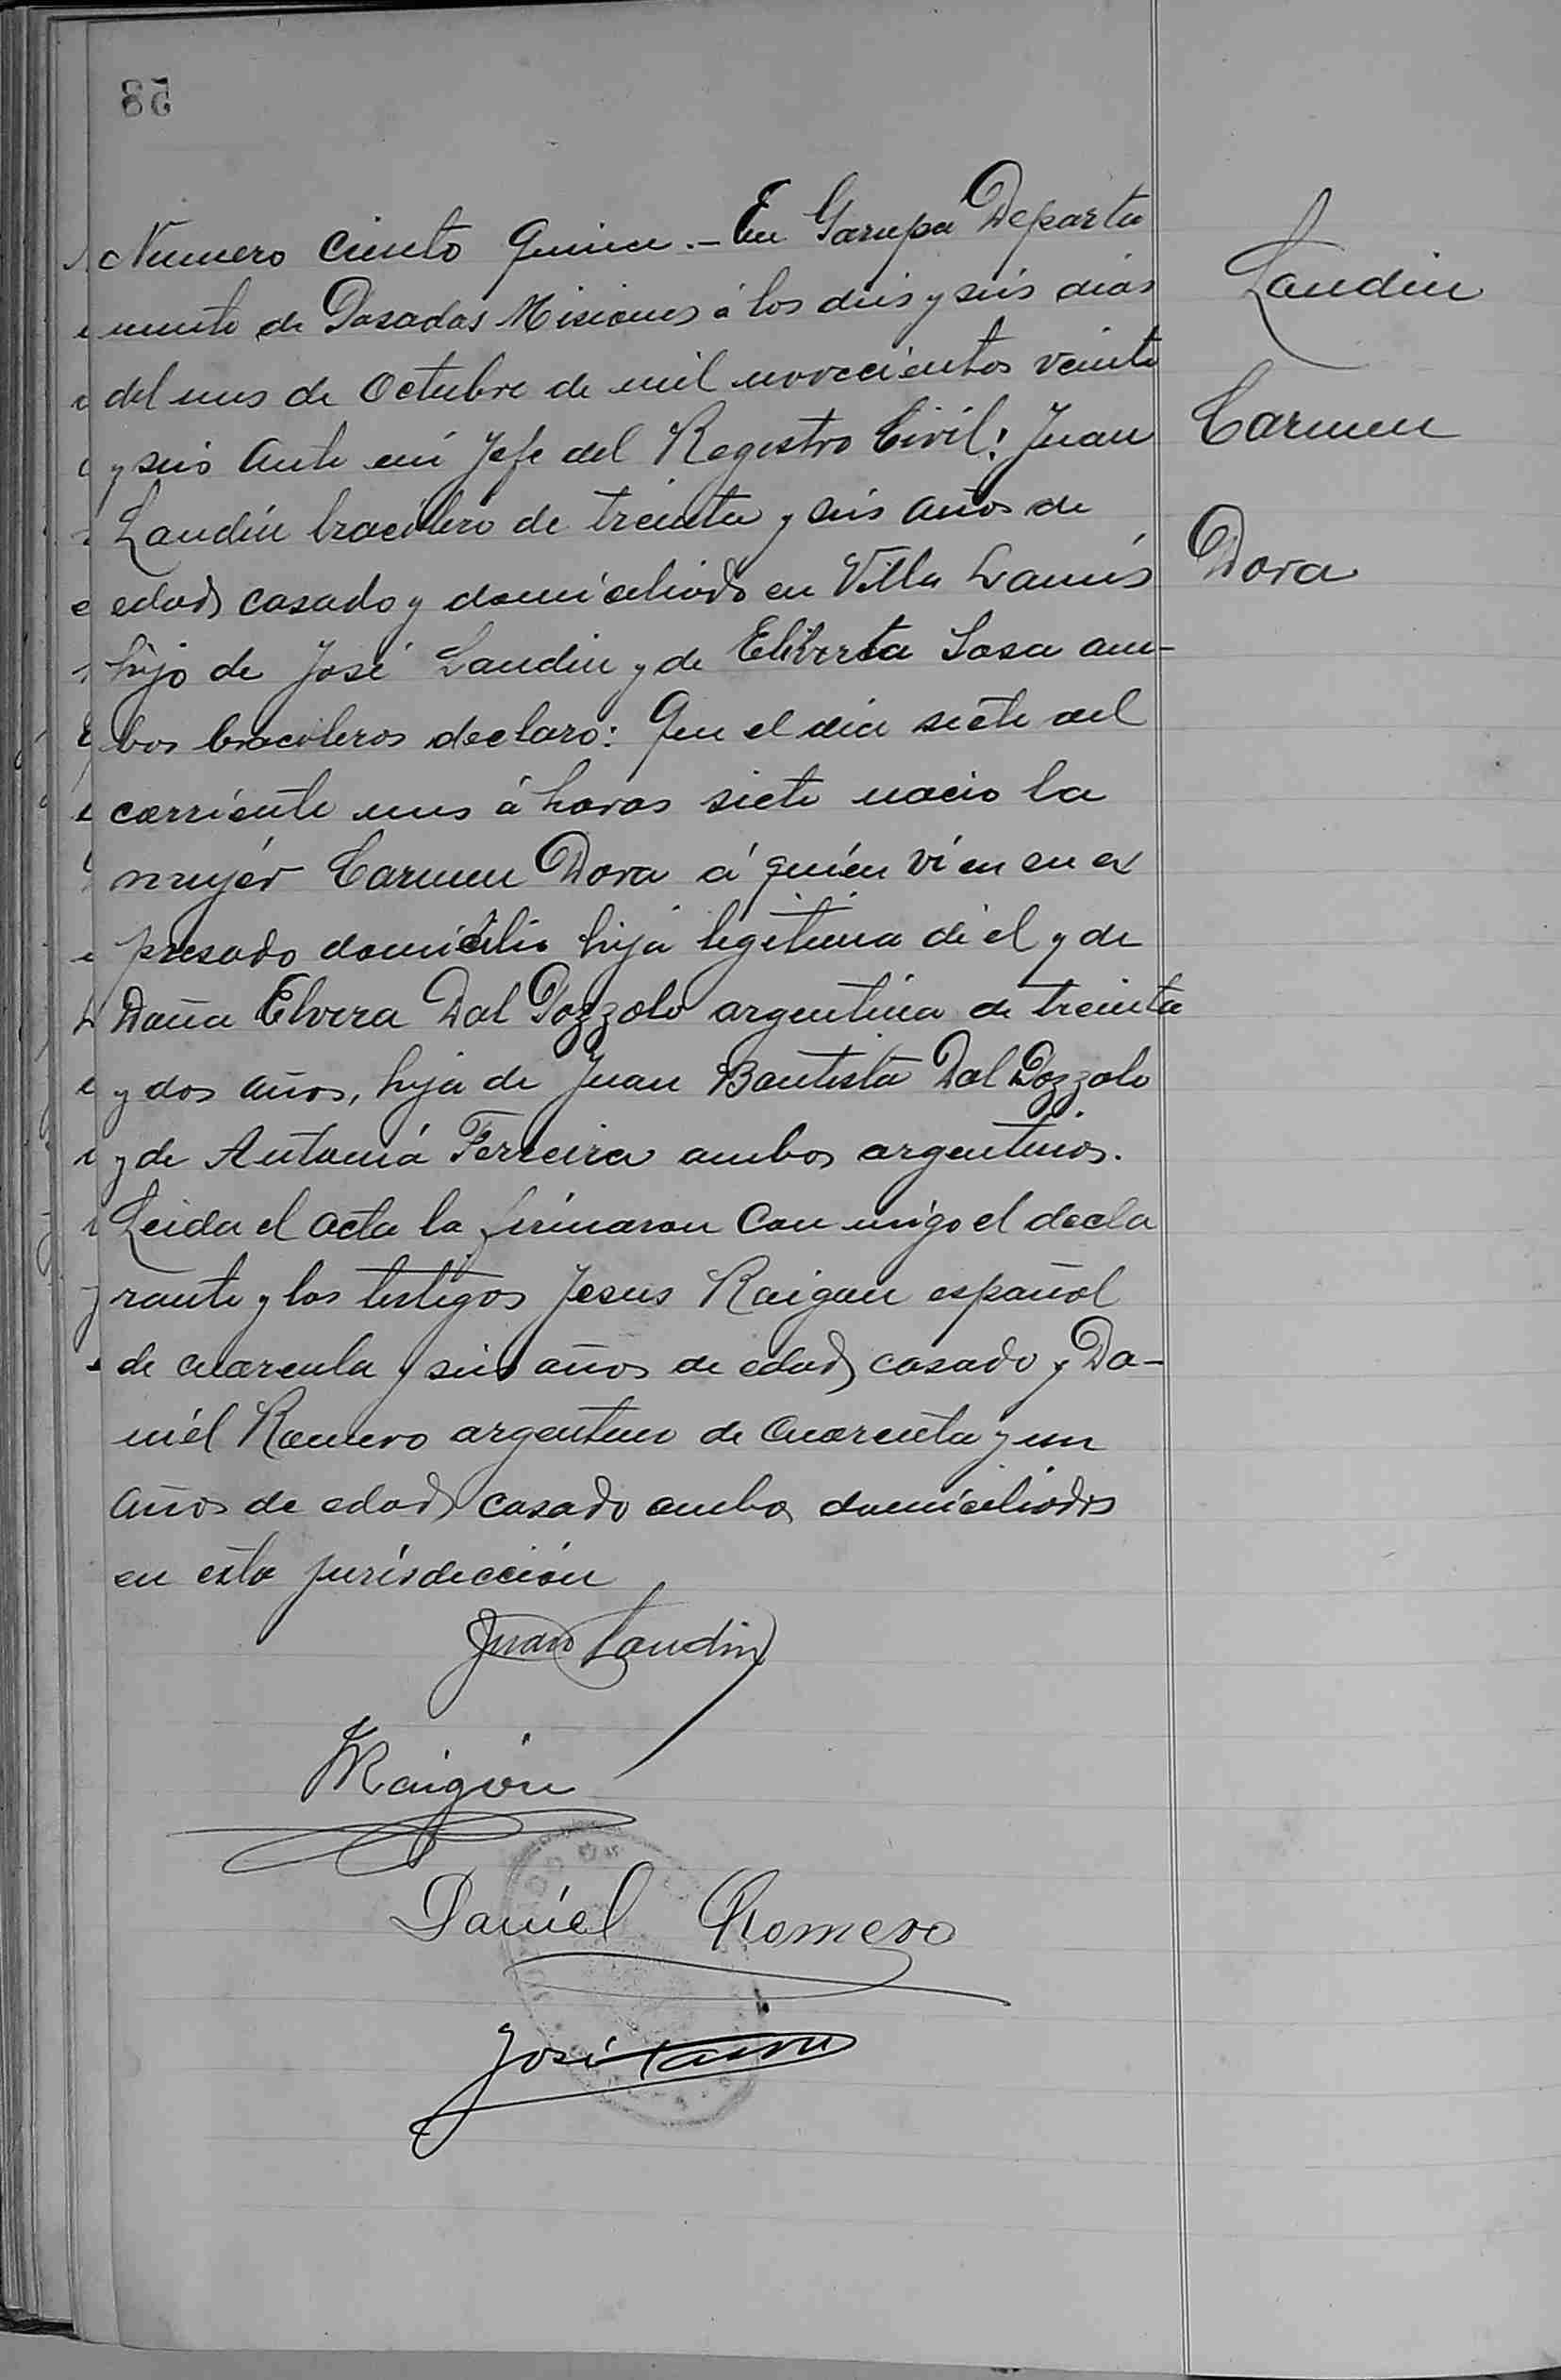 58
Numero Ciento Quince.- En Garupa Departa
mento de Posadas Misiones á los dies y seis dias
del mes de Octubre de mil novecientos veinte
y seis Ante mi Jefe del Registro Civil: Juan
Landin bracilero de treinta y seis años de
edad casado y domiciliado en Villa Lanús
hijo de José Landin y de Eliberta Sosa am-
bos bracileros declaro: Que el dia siete del
corriente mes á horas siete nacio la
mujér Carmen Dora á quién ví en su ex
presado domicilio hija legitima dé el y de
Doña Elvera Dal Pozzolo argentina de treinta
y dos años, hija de Juan Bautista Dal Pozzolo
y de Antonia Ferreira ambos argentinos.
Leida el acta la firmaron Con migo el decla
rante y los testigos Jesus Raigon español
de cuarenta y seis años de edad casado y Da-
niél Romero argentino de Cuarenta y un
años de edad casado ambos domiciliados
en esta jurisdicción
Juan Landin
JRaigón
Daniel Romero
José
Landin
Carmen
Dora